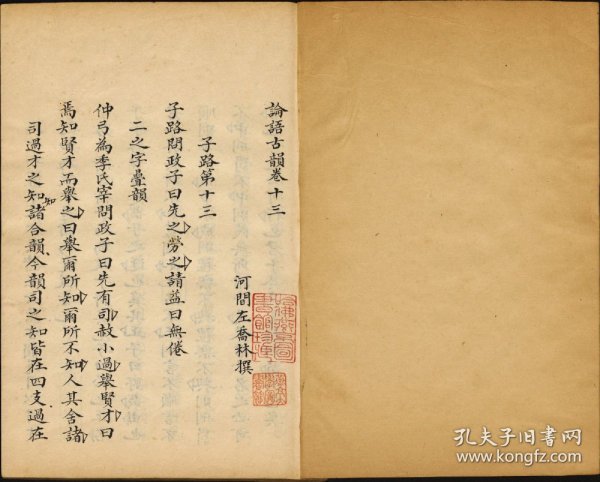 論語古韻卷十三
河間左喬林撰
子路第十三
子路問政子曰先之勞之請益曰無倦
二之字疊韻
仲弓為季氏宰問政子曰先有司赦小過舉賢才曰
焉知賢才而舉之曰舉爾所知爾所不知人其舍諸
司過才之知知諸合韻今韻司之知皆在四支過在
孔夫子旧书网
www.kongfz.com